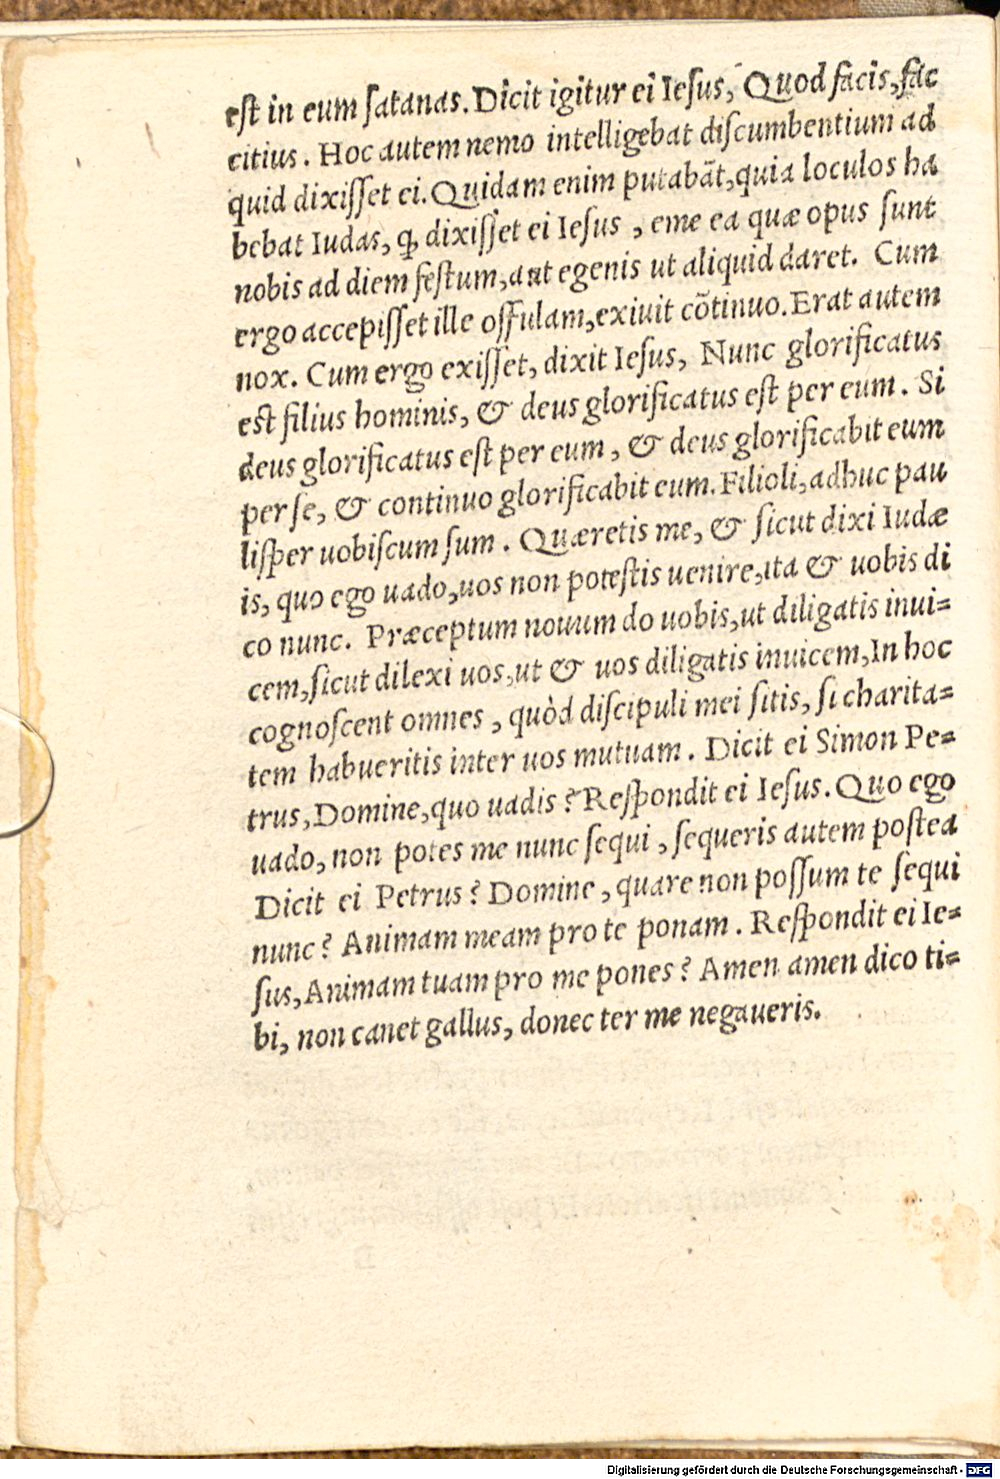 est in eum satanas. Dicit igitur ei Iesus, Quod facis, fac
citius. Hoc autem nemo intelligebat discumbentium ad
quid dixisset ei. Quidam enim putabāt, quia loculos ha
bebat Iudas, ꝙ dixisset ei Iesus, eme ea quæ opus sunt
nobis ad diem festum, aut egenis ut aliquid daret. Cum
ergo accepisset ille offulam, exiuit cōtinuo. Erat autem
nox. Cum ergo exisset, dixit Iesus, Nunc glorificatus
est filius hominis, & deus glorificatus est per eum. Si
deus glorificatus est per eum, & deus glorificabit eum
per se, & continuo glorificabit eum. Filioli, adhuc pau
lisper uobiscum sum. Quæretis me, & sicut dixi Iudæ
is, quo ego uado, uos non potestis uenire, ita & uobis di
co nunc. Præceptum nouum do uobis, ut diligatis inui=
cem, sicut dilexi uos, ut & uos diligatis inuicem, In hoc
cognoscent omnes, quòd discipuli mei sitis, si charita=
tem habueritis inter uos mutuam. Dicit ei Simon Pe=
trus, Domine, quo uadis? Respondit ei Iesus. Quo ego
uado, non potes me nunc sequi, sequeris autem postea
Dicit ei Petrus? Domine, quare non possum te sequi
nunc? Animam meam pro te ponam. Respondit ei Ie=
sus, Animam tuam pro me pones? Amen amen dico ti=
bi, non canet gallus, donec ter me negaueris.
Digitalisierung gefördert durch die Deutsche Forschungsgemeinschaft - DFG